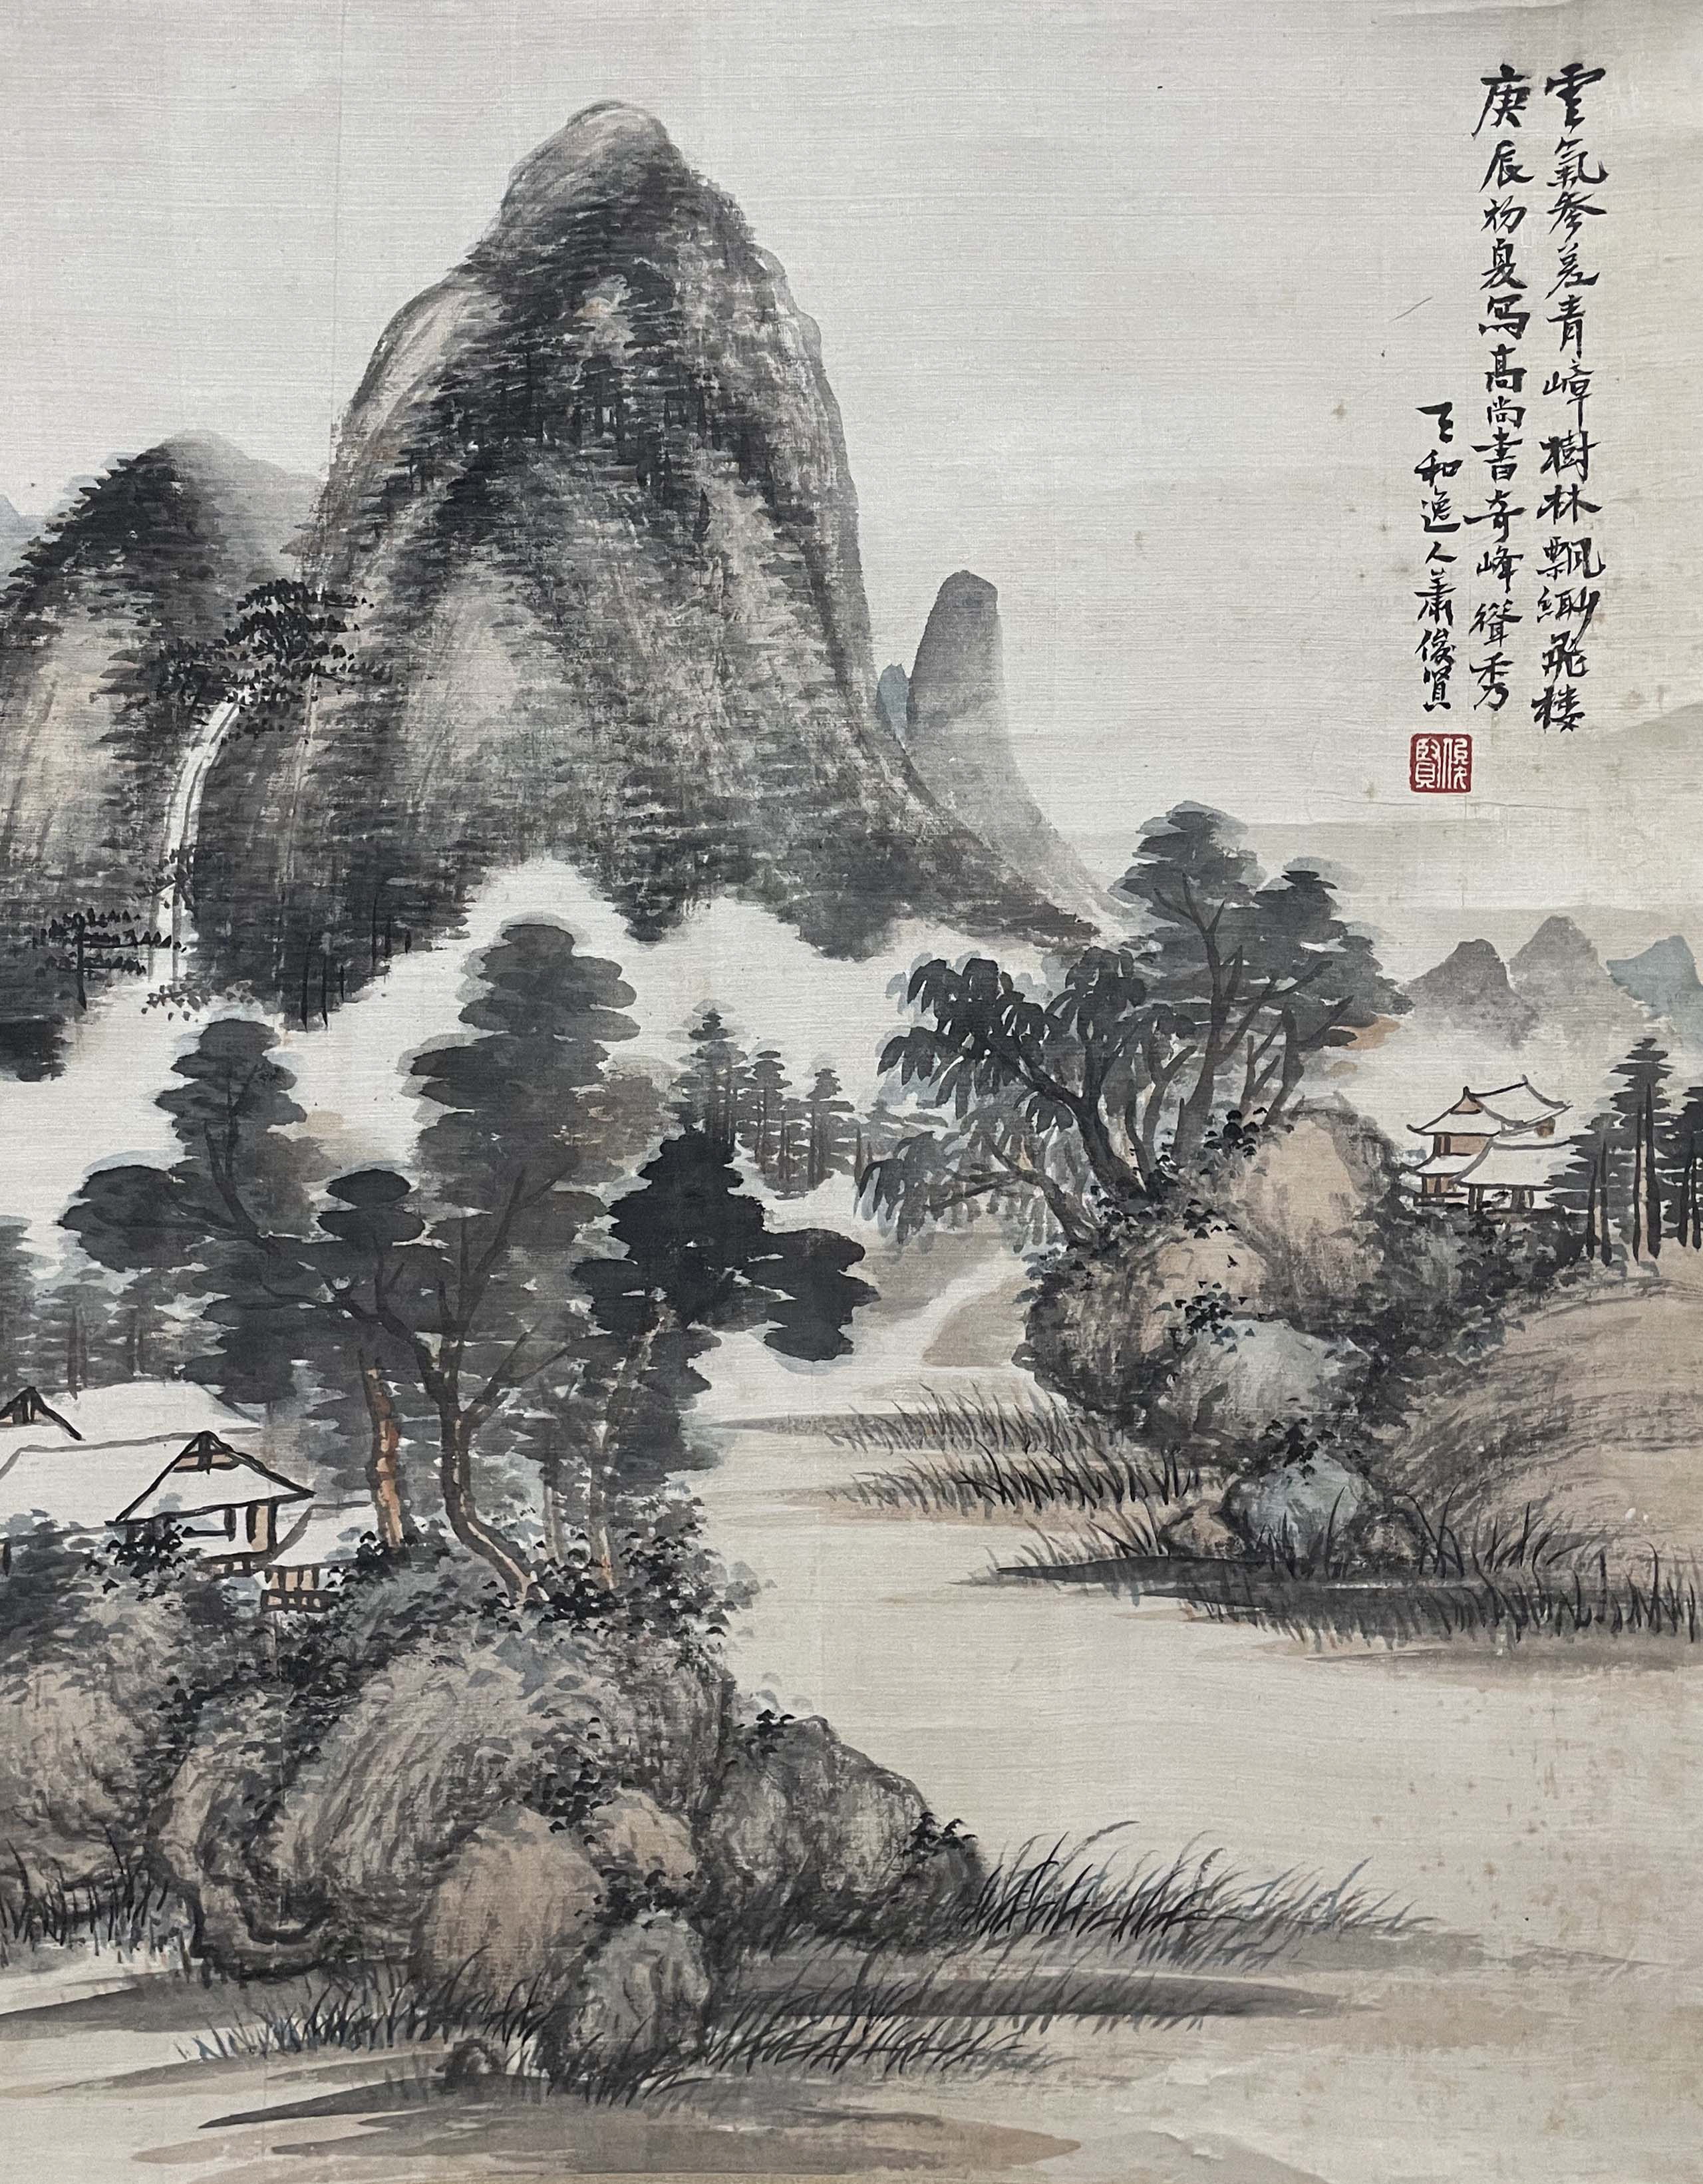 雲氣參差青嶂樹林飄緲飛樓
庚辰初夏寫高尚書奇峰聳秀
天和逸人蕭俊賢
俊賢